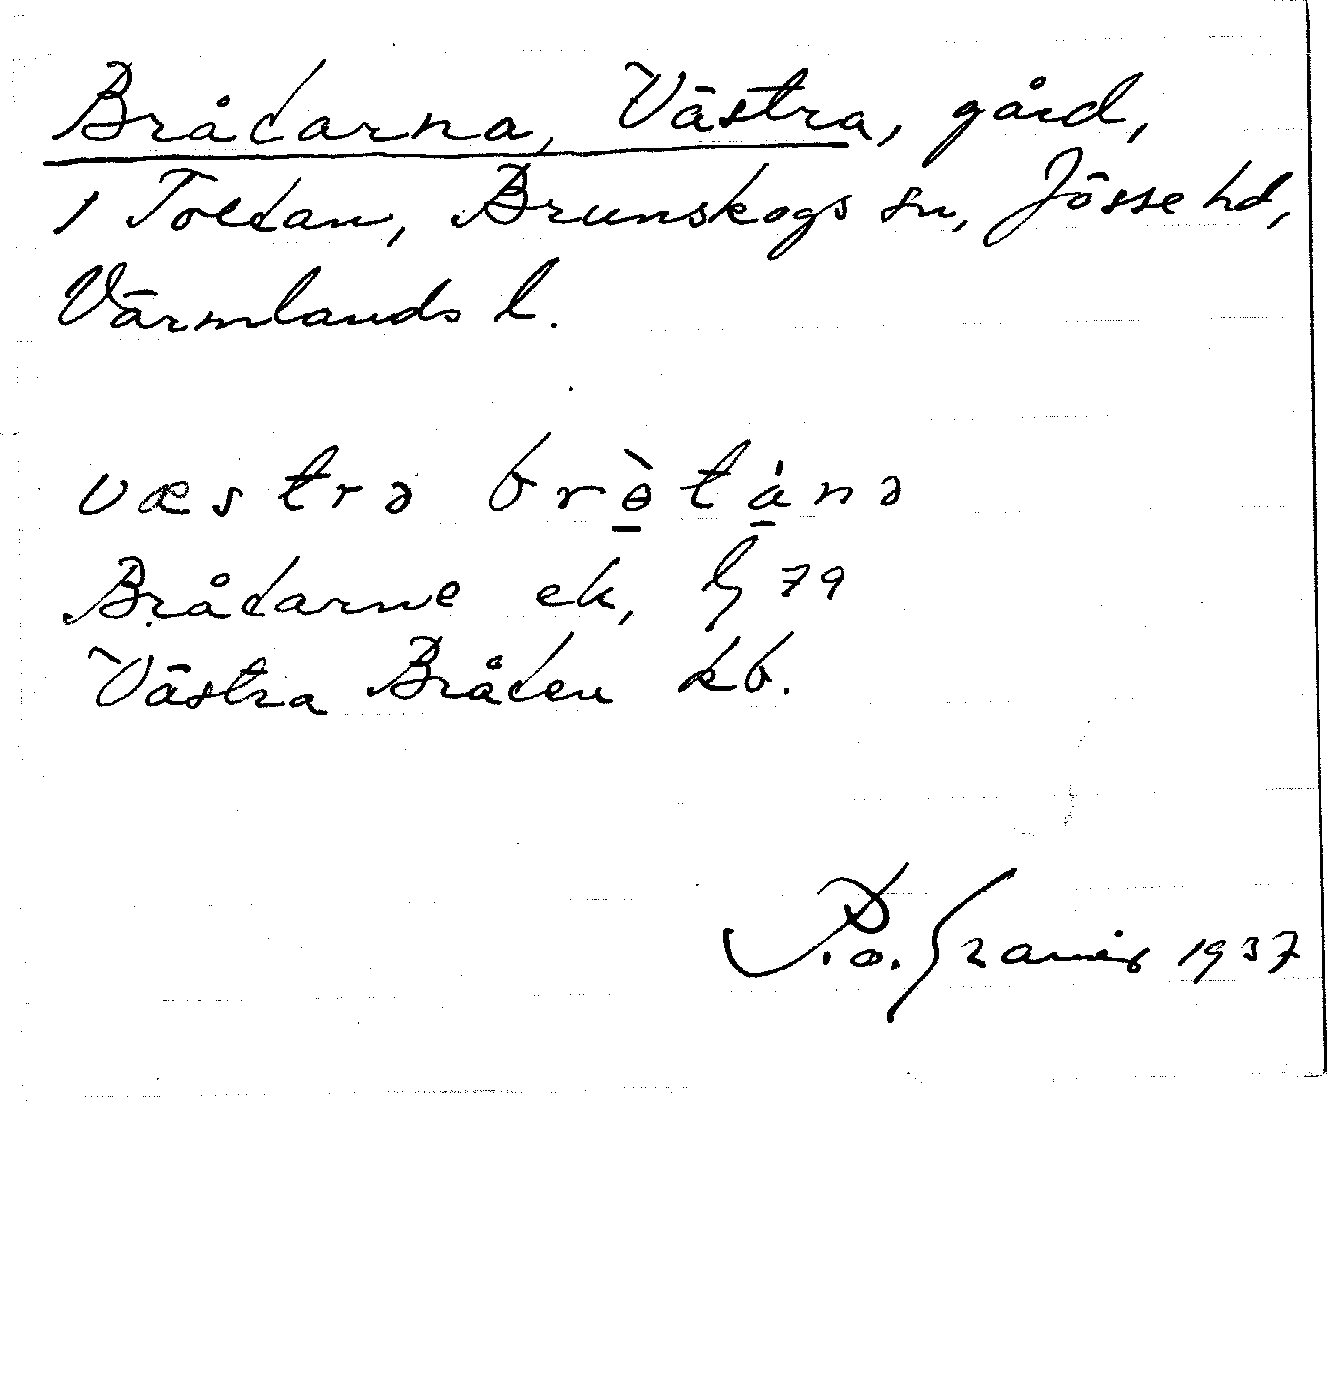 Bråtarna, Västra, gård,
1 Toltan, Brunskogs sn, Jösse hd,
Värmlands l.
væstrə brɵ̀tánə
Bråtarne ek, 79
Västra Bråten kb.
P.o. 1937